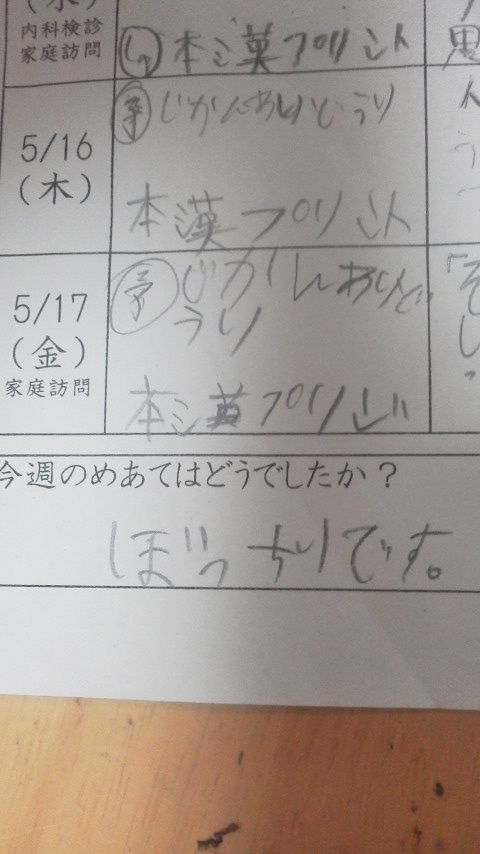 (水)
内科検診
家庭訪問
し 本 漢 プリント
5/16
(木)
予 じかんわりどうり
本 漢 プリント
5/17
(金)
家庭訪問
予 じかんわりど
うり
本 漢 プリント
今週のめあてはどうでしたか？
ばっちりです。